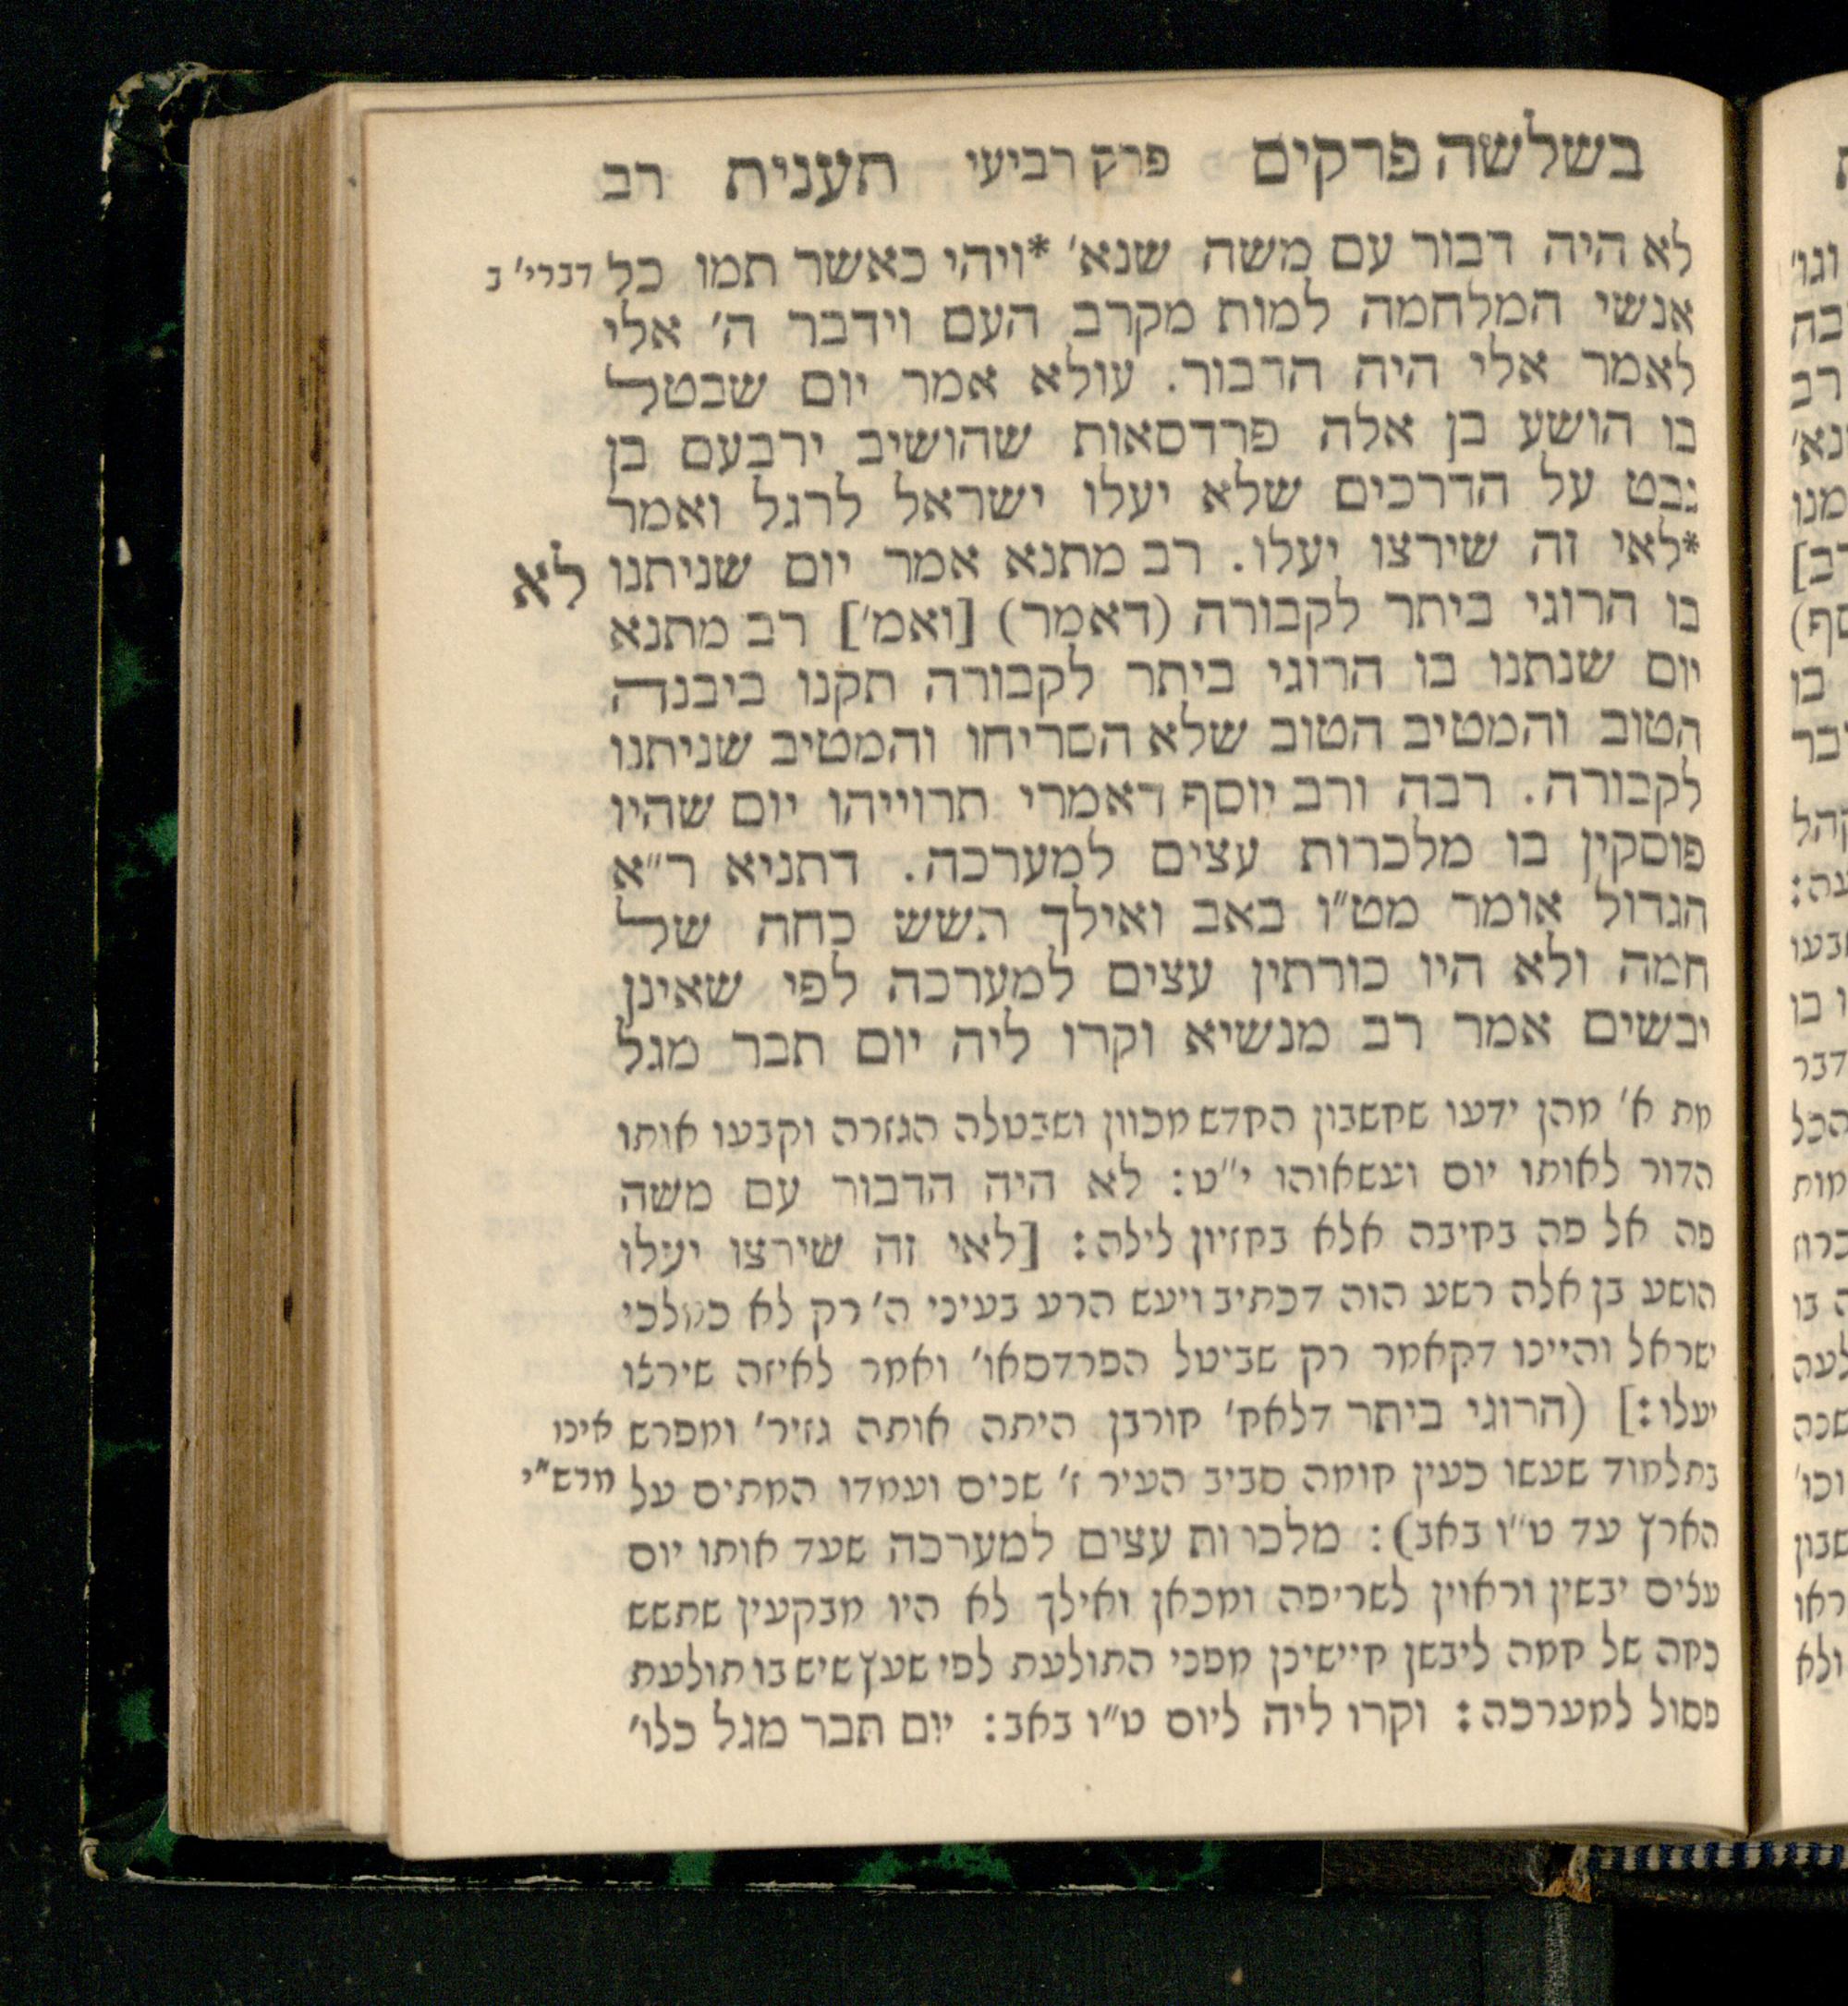 בשלשה פרקים פרק רביעי תענית רב
לא היה דבור עם משה שנא' *ויהי כאשר תמו כל דברי' ב
אנשי המלחמה למות מקרב העם וידבר ה' אלי
לאמר אלי היה הדבור. עולא אמר יום שבטל
בו הושע בן אלה פרדסאות שהושיב ירבעם בן
נבט על הדרכים שלא יעלו ישראל לרגל ואמר
*לאי זה שירצו יעלו. רב מתנא אמר יום שניתנו לא
בו הרוגי ביתר לקבורה (דאמר) [ואמ'] רב מתנא
יום שנתנו בו הרוגי ביתר לקבורה תקנו ביבנה
הטוב והמטיב הטוב שלא הסריחו והמטיב שניתנו
לקבורה. רבה ורב יוסף דאמרי תרוייהו יום שהיו
פוסקין בו מלכרות עצים למערכה. דתניא ר"א
הגדול אומר מט"ו באב ואילך תשש כחה של
חמה ולא היו כורתין עצים למערכה לפי שאינן
יבשים אמר רב מנשיא וקרו ליה יום תבר מגל
מת א' מהן ידעו שחשבון החדש מכוון ושבטלה הגזרה וקבעו אותו
הדור לאותו יום ועשאוהו י"ט: לא היה הדבור עם משה
פה אל פה בחיבה אלא בחזיון לילה: [לאי זה שירצו יעלו
הושע בן אלה רשע הוה דכתיב ויעש הרע בעיני ה' רק לא כמלכי
ישראל והיינו דקאמר רק שביטל הפרדסאו' ואמר לאיזה שירצו
יעלו:] (הרוגי ביתר דלאח' חורבן היתה אותה גזיר' ומפרש אינו
בתלמוד שעשו כעין חומה סביב העיר ז' שנים ועמדו המתים על מרש"י
הארץ עד ט"ו באב): מלכרות עצים למערכה שעד אותו יום
עצים יבשין וראוין לשריפה ומכאן ואילך לא היו מבקעין שתשש
כחה של חמה ליבשן חיישינן מפני התולעת לפי שעץ שיש בו תולעת
פסול למערכה: וקרו ליה ליום ט"ו באב: יום תבר מגל כלו'